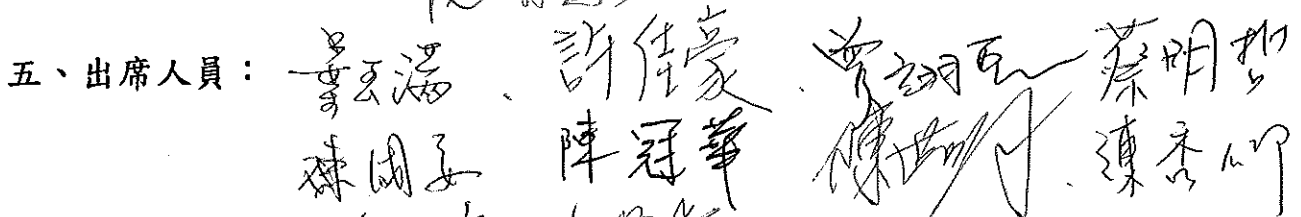 五、出席人員：葉玉滿、許佳豪、曾翊亙、蔡明哲
陳國晏 陳冠華 陳世明、陳香仰